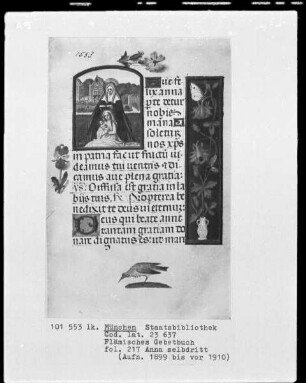 1553
lix anna
nobis
nos xp̄s
in patria fac ut fructu ui
deamus tui uentris & di
camus aue plena gratia:
℣s. Diffusa est gratia in la
bijs tuis. ℟s. Propterea be
nedixit te deus in eternum:
Deus qui beate anne
tantam gratiam do
nare dignatus es: ut mari
101 553 lk. München Staatsbibliothek
Cod. lat. 23 637
Flämisches Gebetbuch
fol. 217 Anna selbdritt
(Aufn. 1899 bis vor 1910)